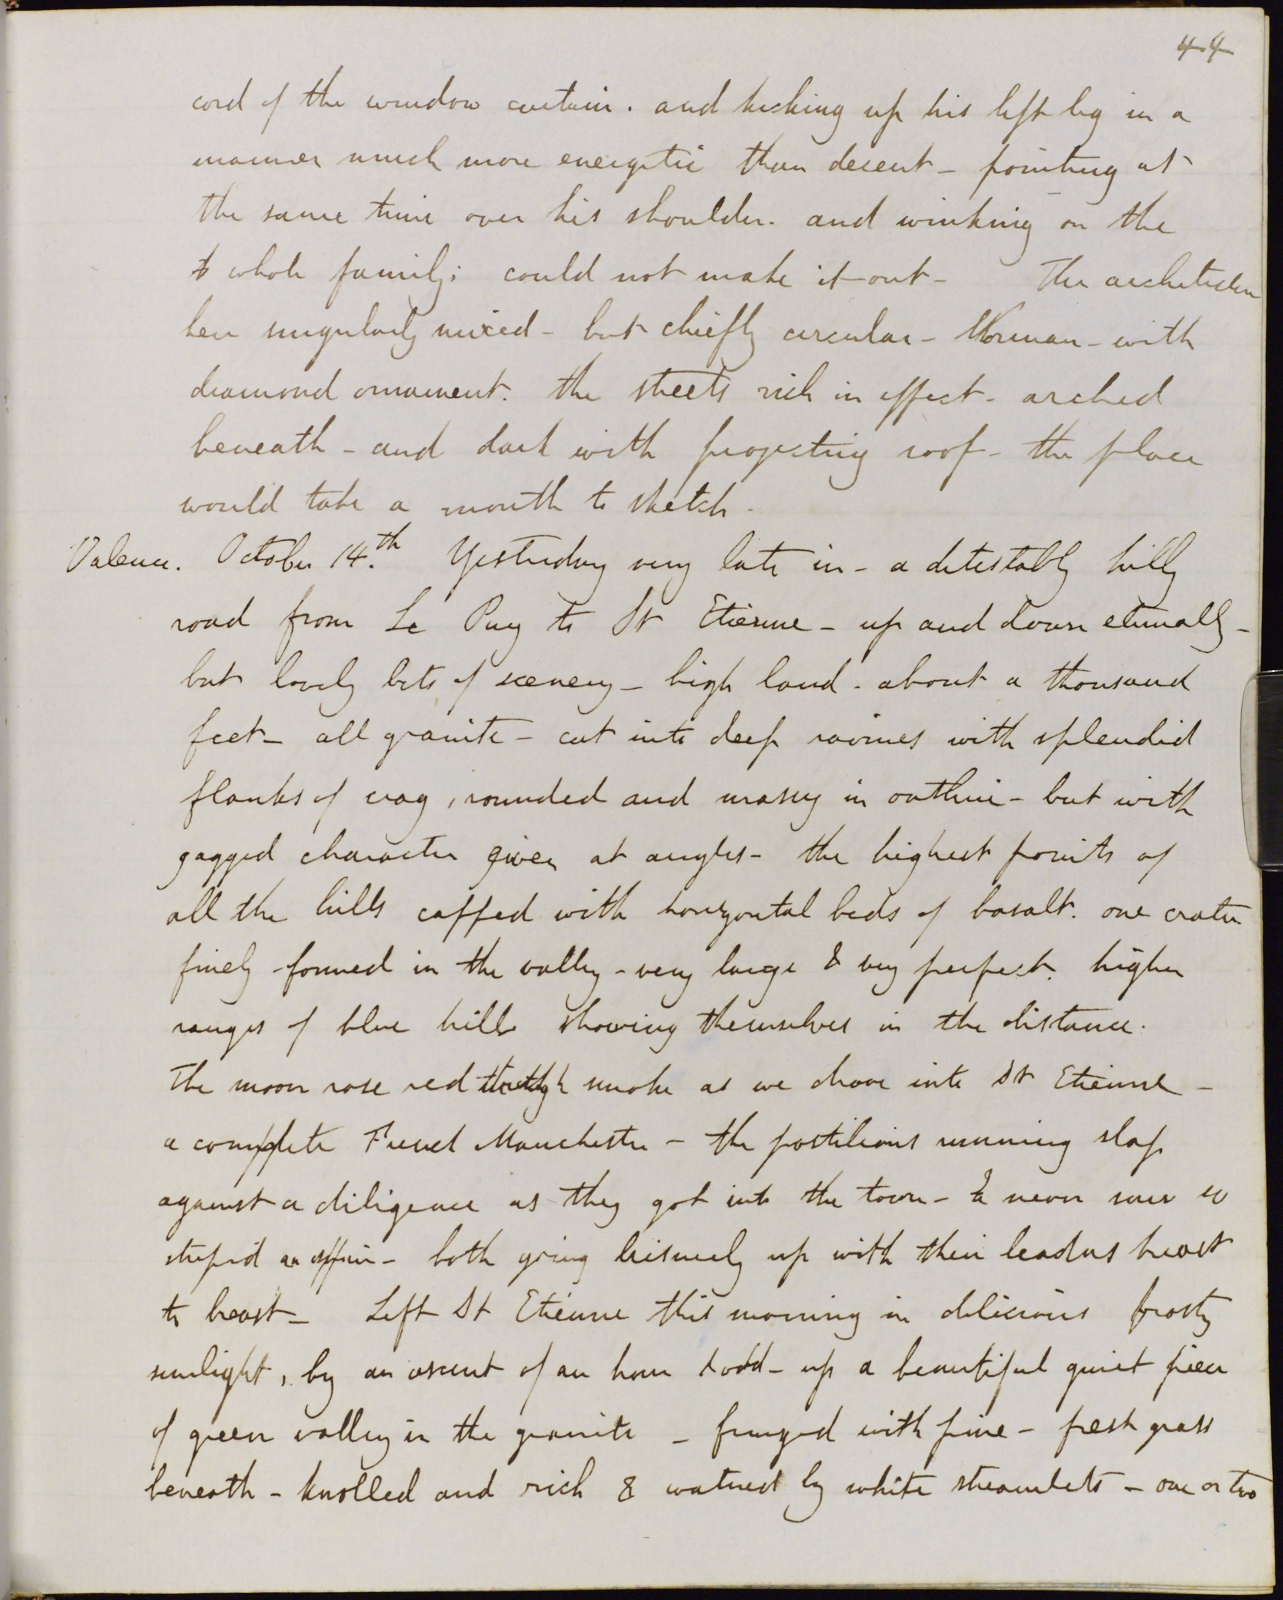 44
cord of the window curtain. and kicking up his left leg in a
manner much more energetic than decent - pointing at
the same time over his shoulder. and winking on the
whole family; could not make it out - The architecture
here singularly mixed - but chiefly circular - Norman - with
diamond ornament. the streets rich in effect - arched
beneath - and dark with projecting roof - the place
would take a month to sketch.
Valence. October 14.th Yesterday very late in - a detestably hilly
road from Le Puy to St Etienne - up and down eternally -
but lovely bits of scenery - high land - about a thousand
feet - all granite - cut into deep ravines with splendid
flanks of crag, rounded and massy in outline - but with
jagged character given at angles - the highest points of
all the hills capped with horizontal beds of basalt. one crater
finely formed in the valley - very large & very perfect. higher
ranges of blue hills showing themselves in the distance.
The moon rose red through smoke as we drove into St Etienne -
a complete French Manchester - the postilions running slap
against a diligence as they got into the town - I never saw so
stupid an affair - both going leisurely up with their leaders breast
to breast - Left St Etienne this morning in delicious frosty
sunlight, by an ascent of an hour & odd - up a beautiful quiet piece
of green valley in the granite - fringed with pine - fresh grass
beneath - knolled and rich & watered by white streamlets - one or two